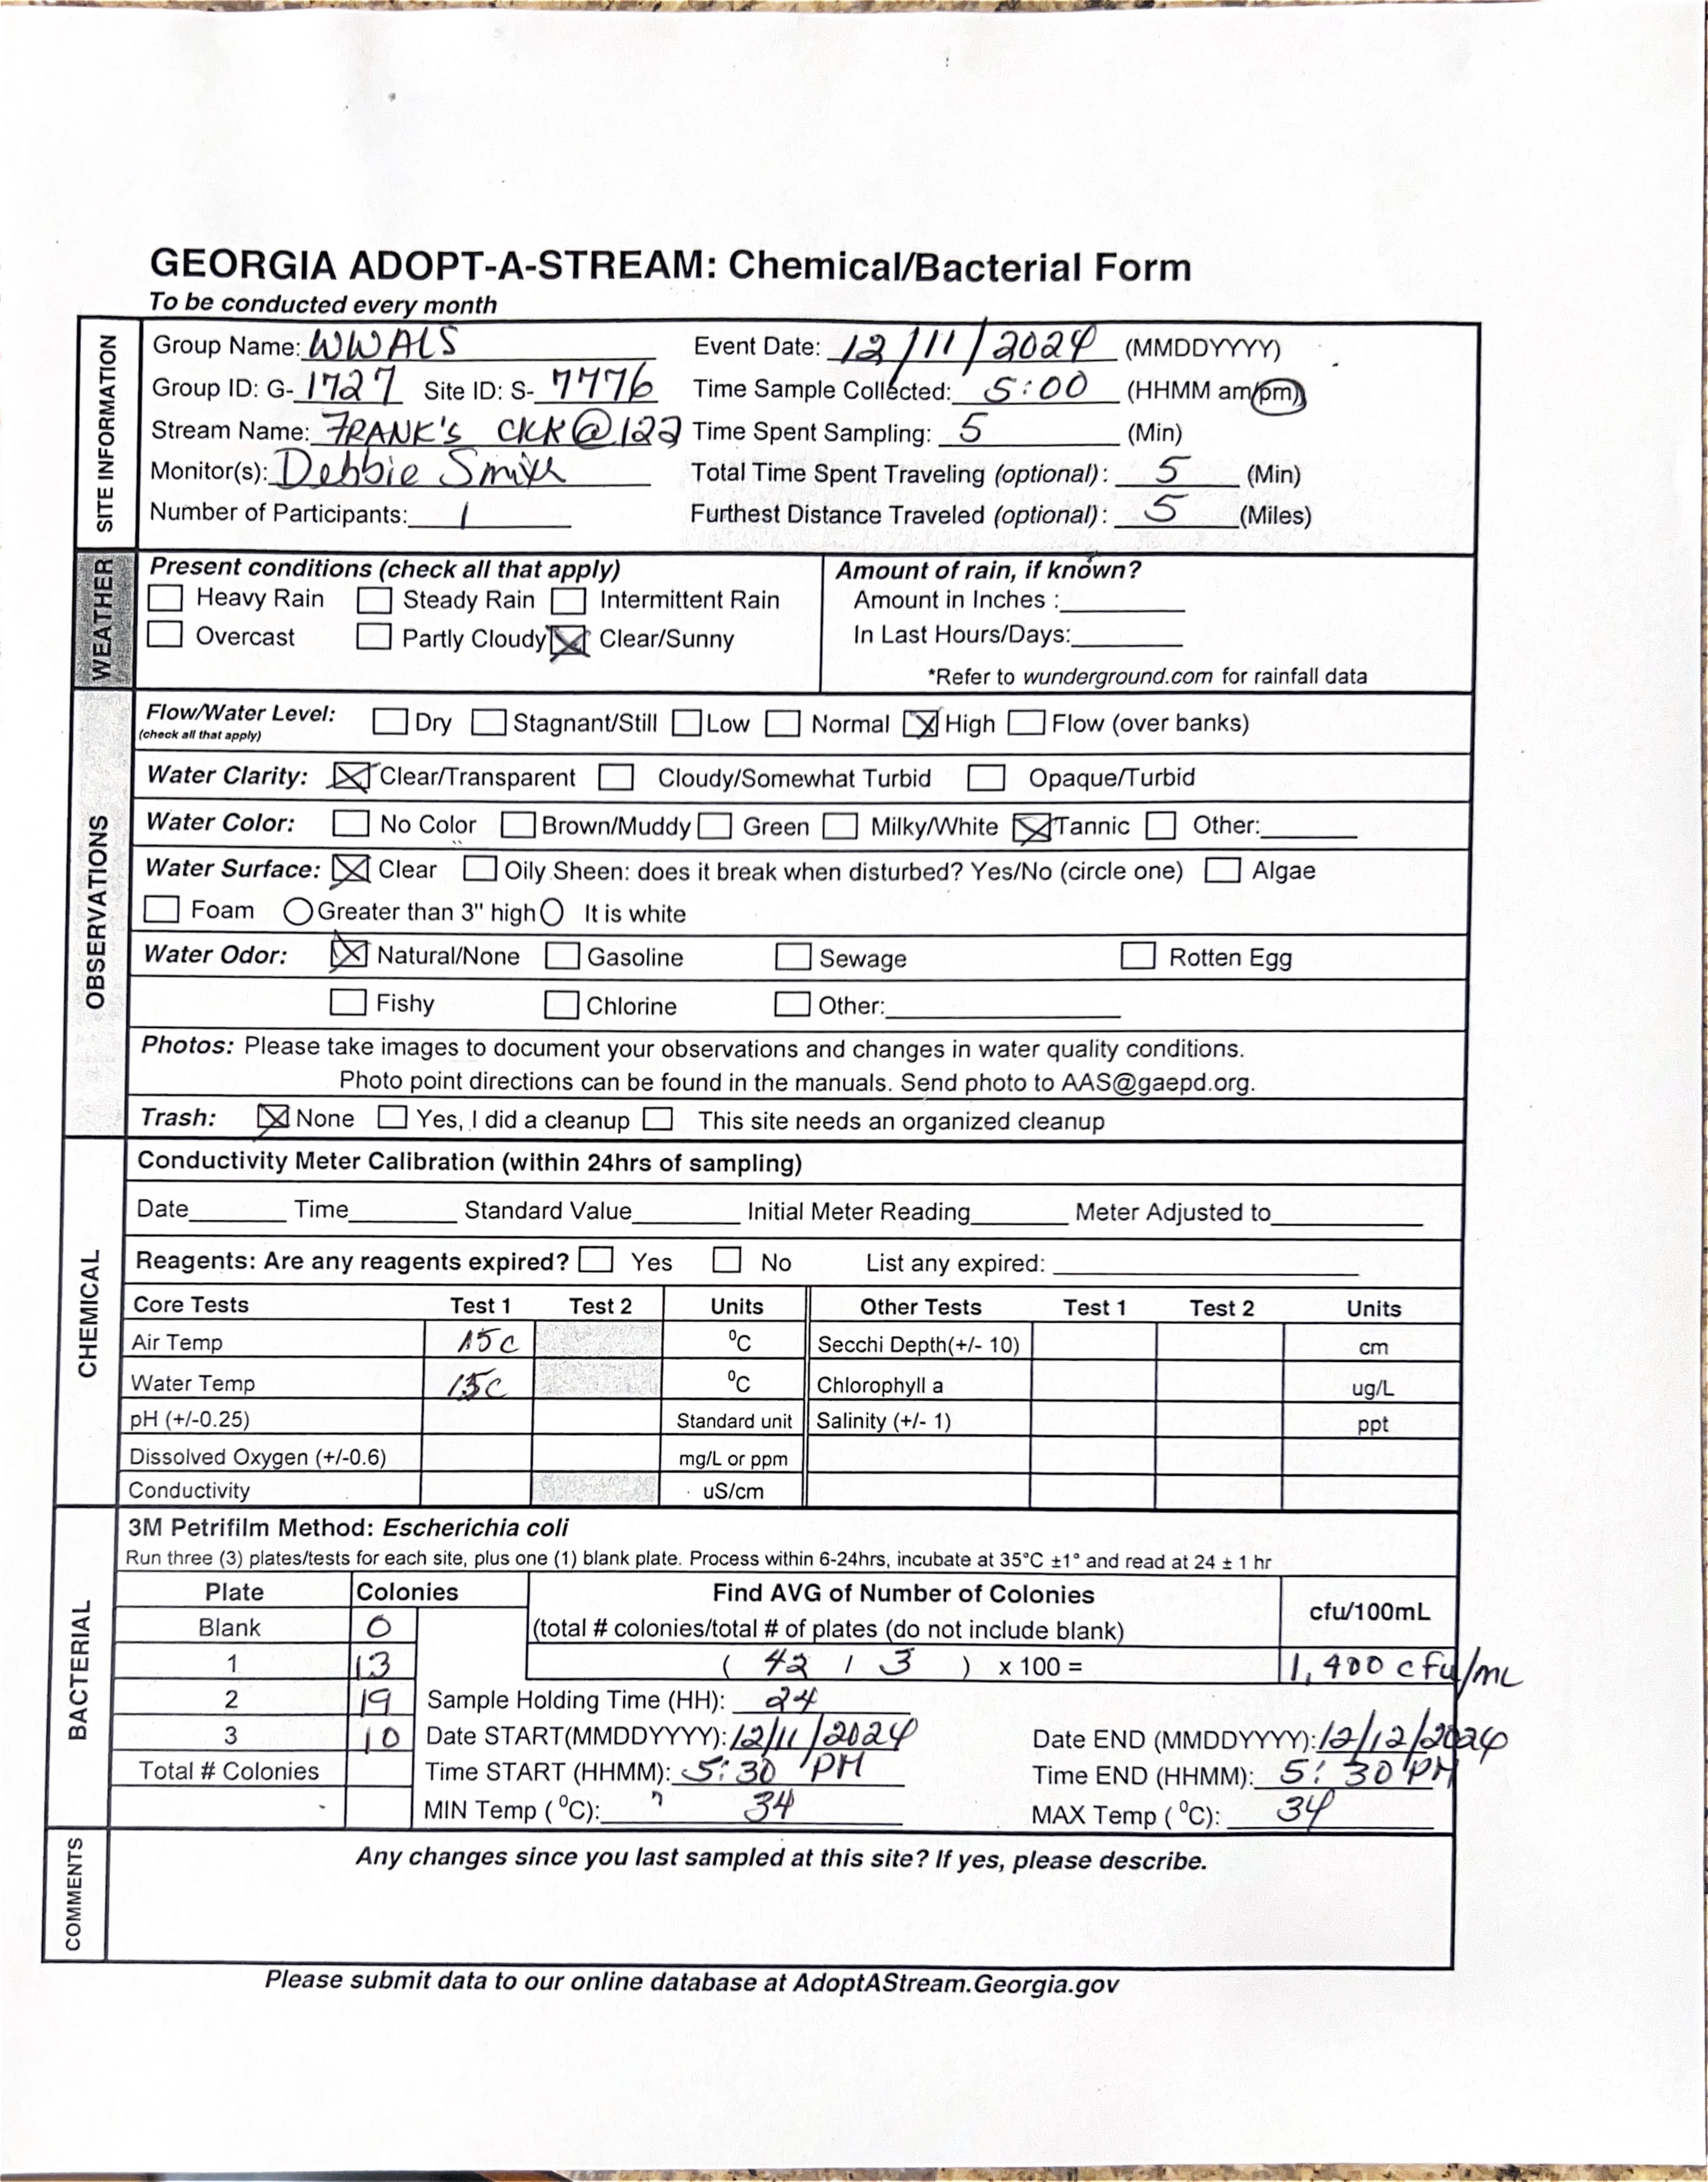 GEORGIA ADOPT-A-STREAM: Chemical/Bacterial Form
To be conducted every month
SITE INFORMATION
Group Name: WWALS Event Date: 12/11/2024 (MMDDYYYY)
Group ID: G- 1727 Site ID: S- 7776 Time Sample Collected: 5:00 (HHMM am/pm)
Stream Name: FRANK'S CKK@122 Time Spent Sampling: 5 (Min)
Monitor(s): Debbie Smith Total Time Spent Traveling (optional): 5 (Min)
Number of Participants: 1 Furthest Distance Traveled (optional): 5 (Miles)
WEATHER
Present conditions (check all that apply) Amount of rain, if known?
Heavy Rain Steady Rain Intermittent Rain Amount in Inches :
Overcast Partly Cloudy Clear/Sunny In Last Hours/Days:
*Refer to wunderground.com for rainfall data
OBSERVATIONS
Flow/Water Level: Dry Stagnant/Still Low Normal High Flow (over banks)
(check all that apply)
Water Clarity: Clear/Transparent Cloudy/Somewhat Turbid Opaque/Turbid
Water Color: No Color Brown/Muddy Green Milky/White Tannic Other:
Water Surface: Clear Oily Sheen: does it break when disturbed? Yes/No (circle one) Algae
Foam Greater than 3" high It is white
Water Odor: Natural/None Gasoline Sewage Rotten Egg
Fishy Chlorine Other:
Photos: Please take images to document your observations and changes in water quality conditions.
Photo point directions can be found in the manuals. Send photo to AAS@gaepd.org.
Trash: None Yes, I did a cleanup This site needs an organized cleanup
CHEMICAL
Conductivity Meter Calibration (within 24hrs of sampling)
Date Time Standard Value Initial Meter Reading Meter Adjusted to
Reagents: Are any reagents expired? Yes No List any expired:
Core Tests Test 1 Test 2 Units Other Tests Test 1 Test 2 Units
Air Temp 15C ⁰C Secchi Depth(+/- 10) cm
Water Temp 15C ⁰C Chlorophyll a ug/L
pH (+/-0.25) Standard unit Salinity (+/- 1) ppt
Dissolved Oxygen (+/-0.6) mg/L or ppm
Conductivity uS/cm
BACTERIAL
3M Petrifilm Method: Escherichia coli
Run three (3) plates/tests for each site, plus one (1) blank plate. Process within 6-24hrs, incubate at 35°C ±1° and read at 24 ± 1 hr
Plate Colonies Find AVG of Number of Colonies cfu/100mL
Blank 0 (total # colonies/total # of plates (do not include blank)
1 13 ( 42 / 3 ) x 100 = 1,400 cfu/mL
2 19 Sample Holding Time (HH): 24
3 10 Date START(MMDDYYYY): 12/11/2024 Date END (MMDDYYYY): 12/12/2024
Total # Colonies Time START (HHMM): 5:30 PM Time END (HHMM): 5:30 PM
MIN Temp (⁰C): 34 MAX Temp (⁰C): 34
COMMENTS
Any changes since you last sampled at this site? If yes, please describe.
Please submit data to our online database at AdoptAStream.Georgia.gov